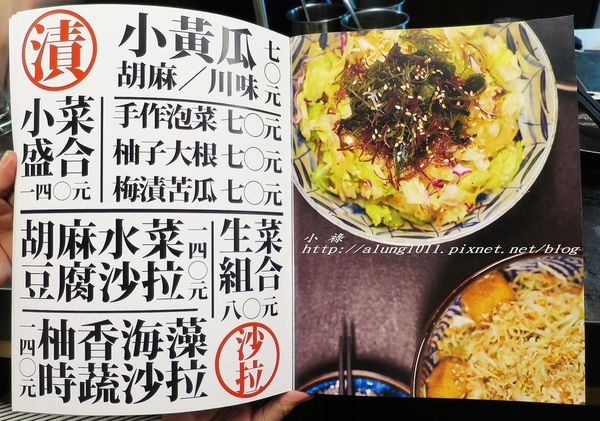 漬
小黃瓜
胡麻／川味
七〇元
小菜
盛合
一四〇元
手作泡菜 七〇元
柚子大根 七〇元
梅漬苦瓜 七〇元
胡麻水菜
豆腐沙拉
一四〇元
生菜
組合
八〇元
一四〇元
柚香海藻
時蔬沙拉
沙拉
小 祿
http://alung1011.pixnet.net/blog